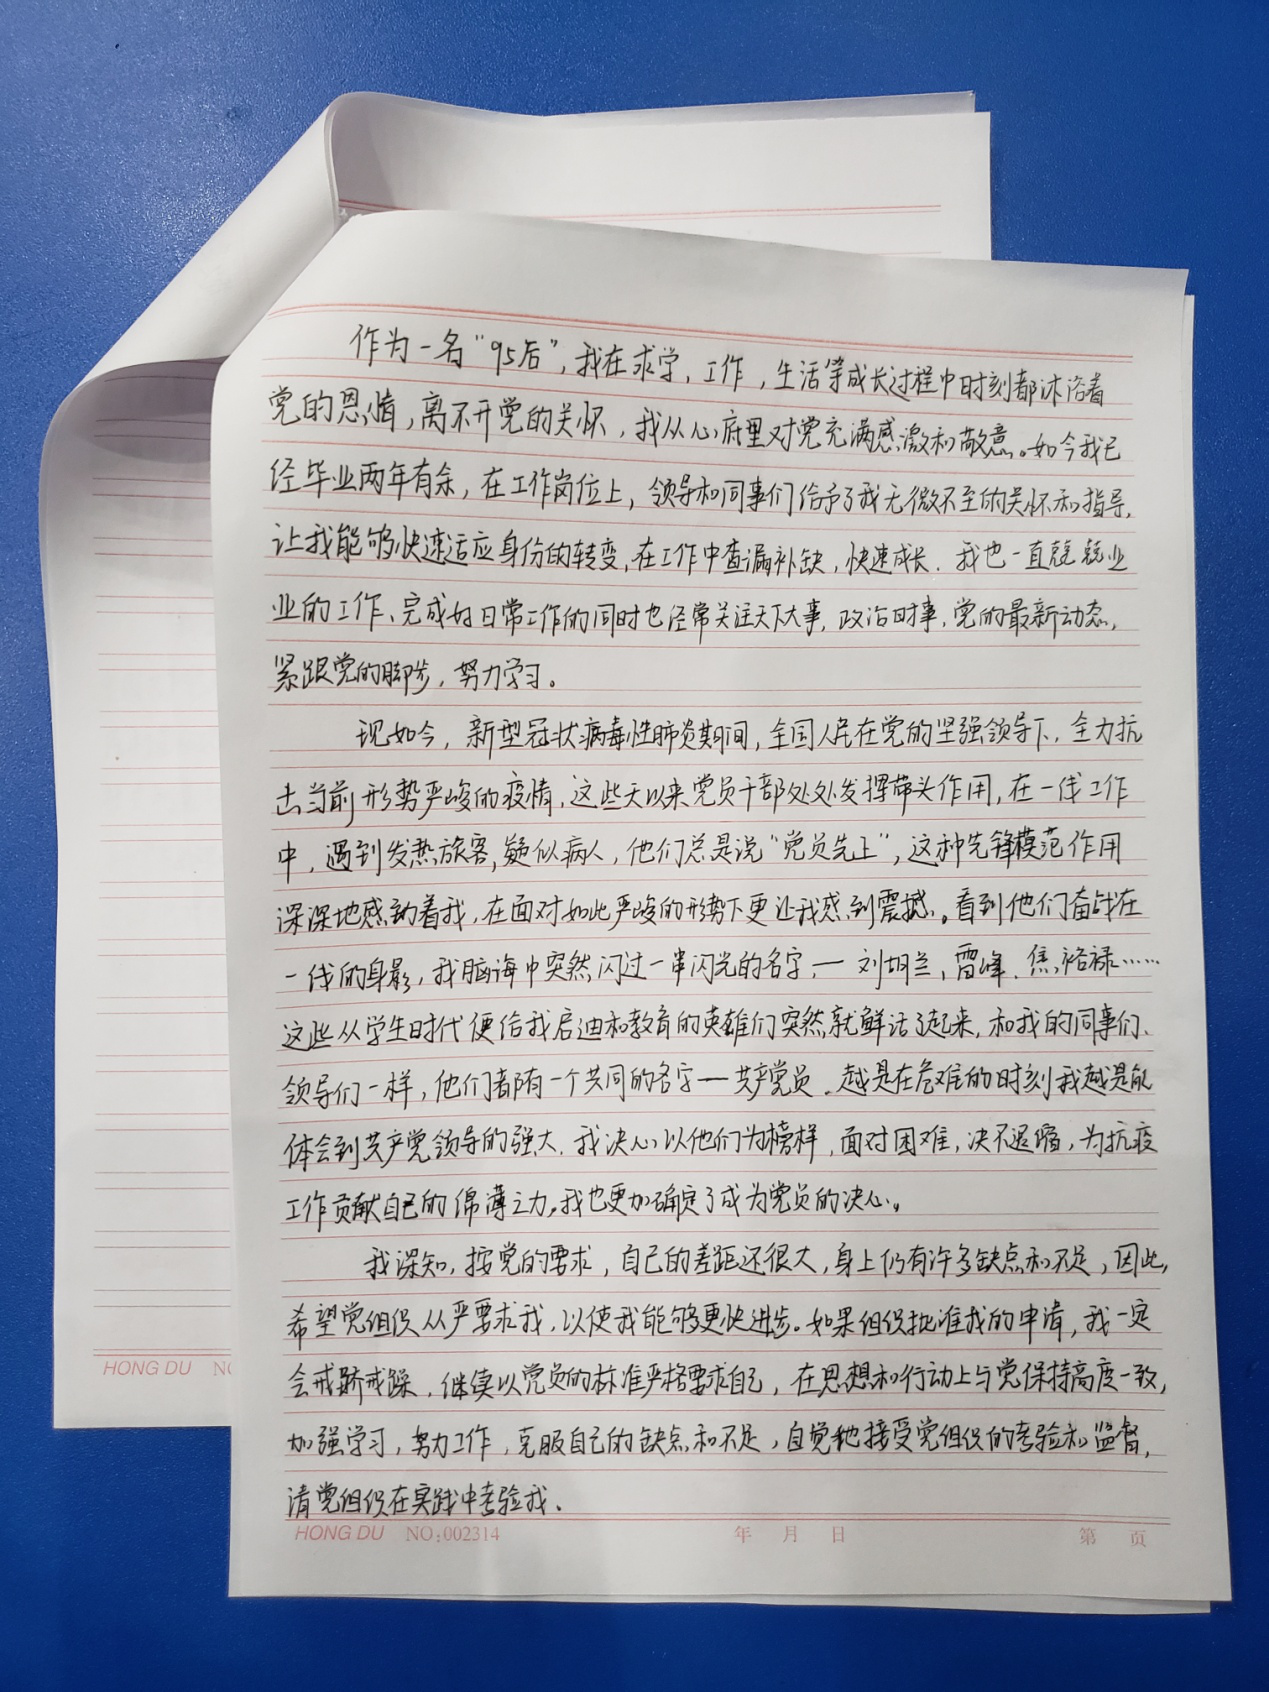 作为一名“95后”，我在求学，工作，生活等成长过程中时刻都沐浴着
党的恩情，离不开党的关怀，我从心府里对党充满感激和敬意。如今我已
经毕业两年有余，在工作岗位上，领导和同事们给予了我无微不至的关怀和指导，
让我能够快速适应身份的转变，在工作中查漏补缺，快速成长．我也一直兢兢业
业的工作、完成好日常工作的同时也经常关注天下大事，政治时事，党的最新动态，
紧跟党的脚步，努力学习。
现如今，新型冠状病毒性肺炎期间，全国人民在党的坚强领导下，全力抗
击当前形势严峻的疫情，这些天以来党员干部处处发挥带头作用，在一线工作
中，遇到发热旅客，疑似病人，他们总是说“党员先上”，这种先锋模范作用
深深地感动着我，在面对如此严峻的形势下更让我感到震撼。看到他们奋战在
一线的身影，我脑海中突然闪过一串闪光的名字，— 刘胡兰，雷峰．焦裕禄……
这些从学生时代便给我启迪和教育的英雄们突然就鲜活了起来，和我的同事们、
领导们一样，他们都有一个共同的名字—共产党员．越是在危难的时刻我越是能
体会到共产党领导的强大．我决心以他们为榜样，面对困难，决不退缩，为抗疫
工作贡献自己的绵薄之力。我也更加确定了成为党员的决心。
我深知，按党的要求，自己的差距还很大，身上仍有许多缺点和不足，因此，
希望党组织从严要求我，以使我能够更快进步。如果组织批准我的申请，我一定
会戒骄戒躁，继续以党员的标准严格要求自己，在思想和行动上与党保持高度一致，
加强学习，努力工作，克服自己的缺点和不足，自觉地接受党组织的考验和监督，
请党组织在实践中考验我．
HONG DU NO:002314 年 月 日 第 页
HONG DU NO